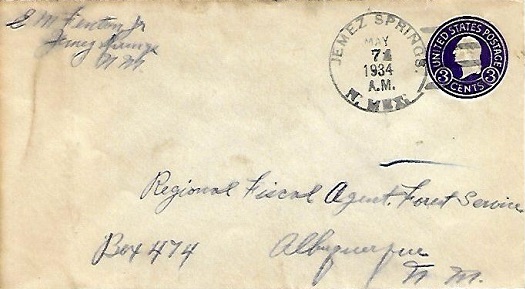 E M Fenton Jr
Jemez Springs
N. M.
JEMEZ SPRINGS.
MAY
7
1934
A.M.
N. MEX.
UNITED STATES POSTAGE
3 CENTS 3
Regional Fiscal Agent. Forest Service
Box 474 Albuquerque
N. M.